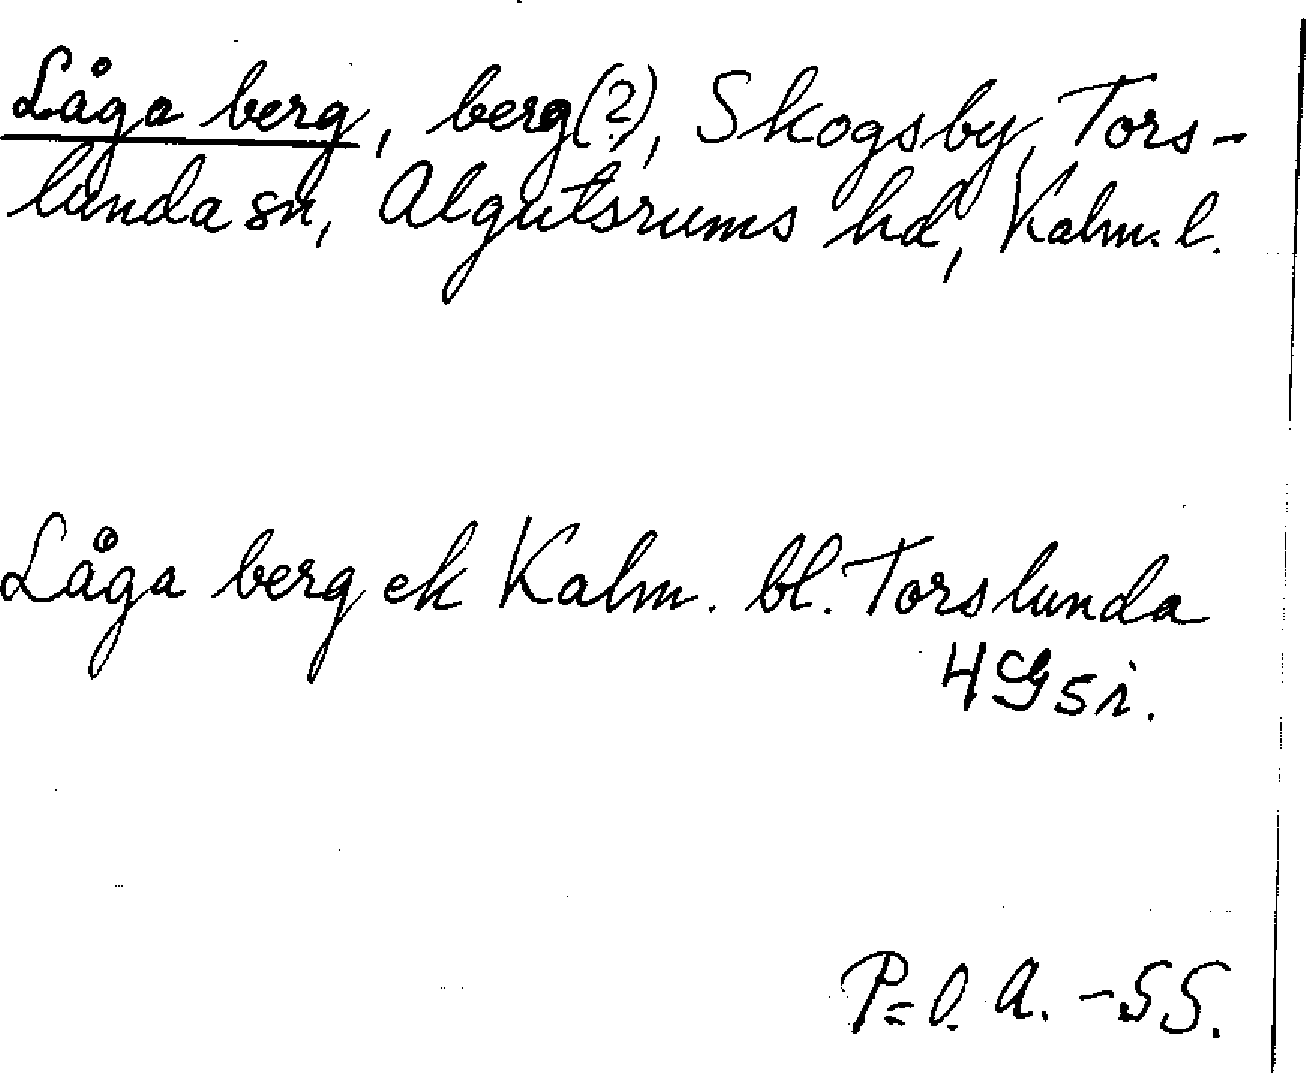 Låga berg, berg(?), Skogsby, Tors-
lunda sn, Algutsrums hd, Kalm. l.
Låga berg ek Kalm. bl. Torslunda
4 G 5 i.
P=l. A. -55.